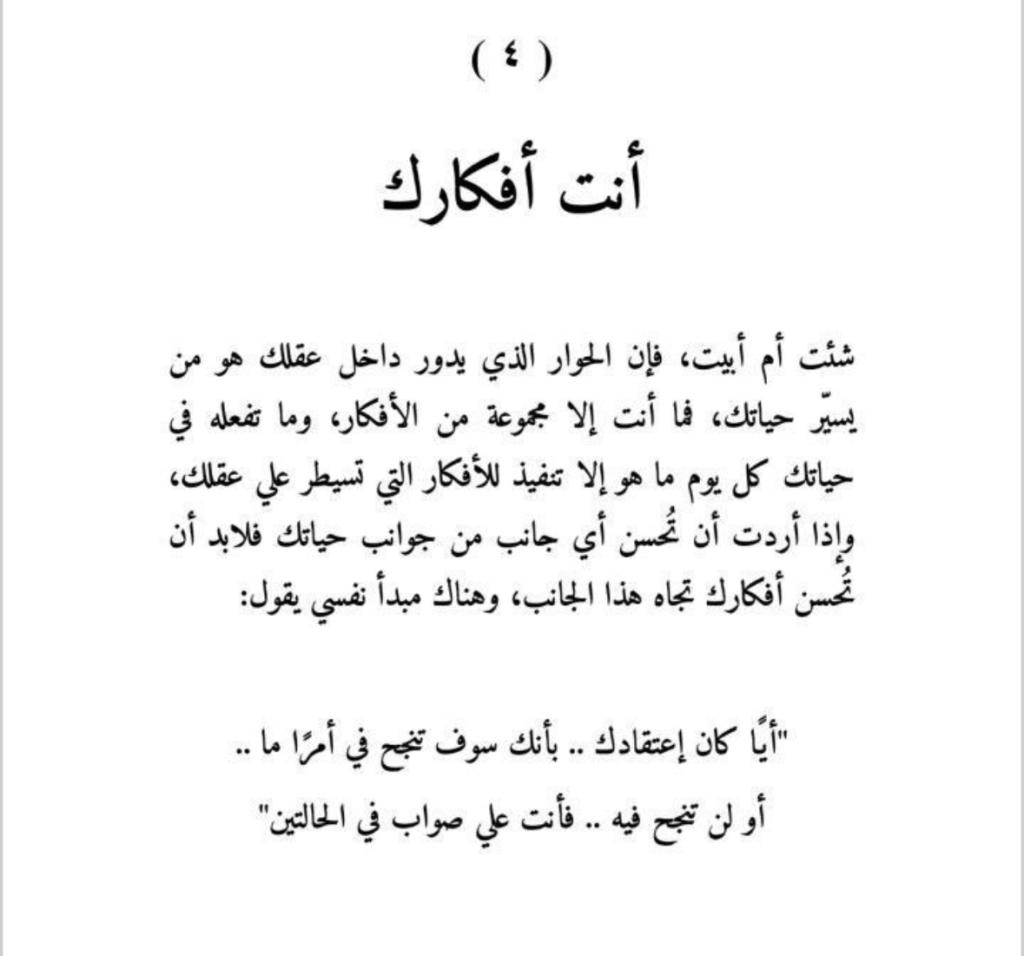 ( ٤ )
أنت أفكارك
شئت أم أبيت، فإن الحوار الذي يدور داخل عقلك هو من
يسيّر حياتك، فما أنت إلا مجموعة من الأفكار، وما تفعله في
حياتك كل يوم ما هو إلا تنفيذ للأفكار التي تسيطر علي عقلك،
وإذا أردت أن تُحسن أي جانب من جوانب حياتك فلابد أن
تُحسن أفكارك تجاه هذا الجانب، وهناك مبدأ نفسي يقول:
"أيًا كان إعتقادك .. بأنك سوف تنجح في أمرًا ما ..
أو لن تنجح فيه .. فأنت علي صواب في الحالتين"